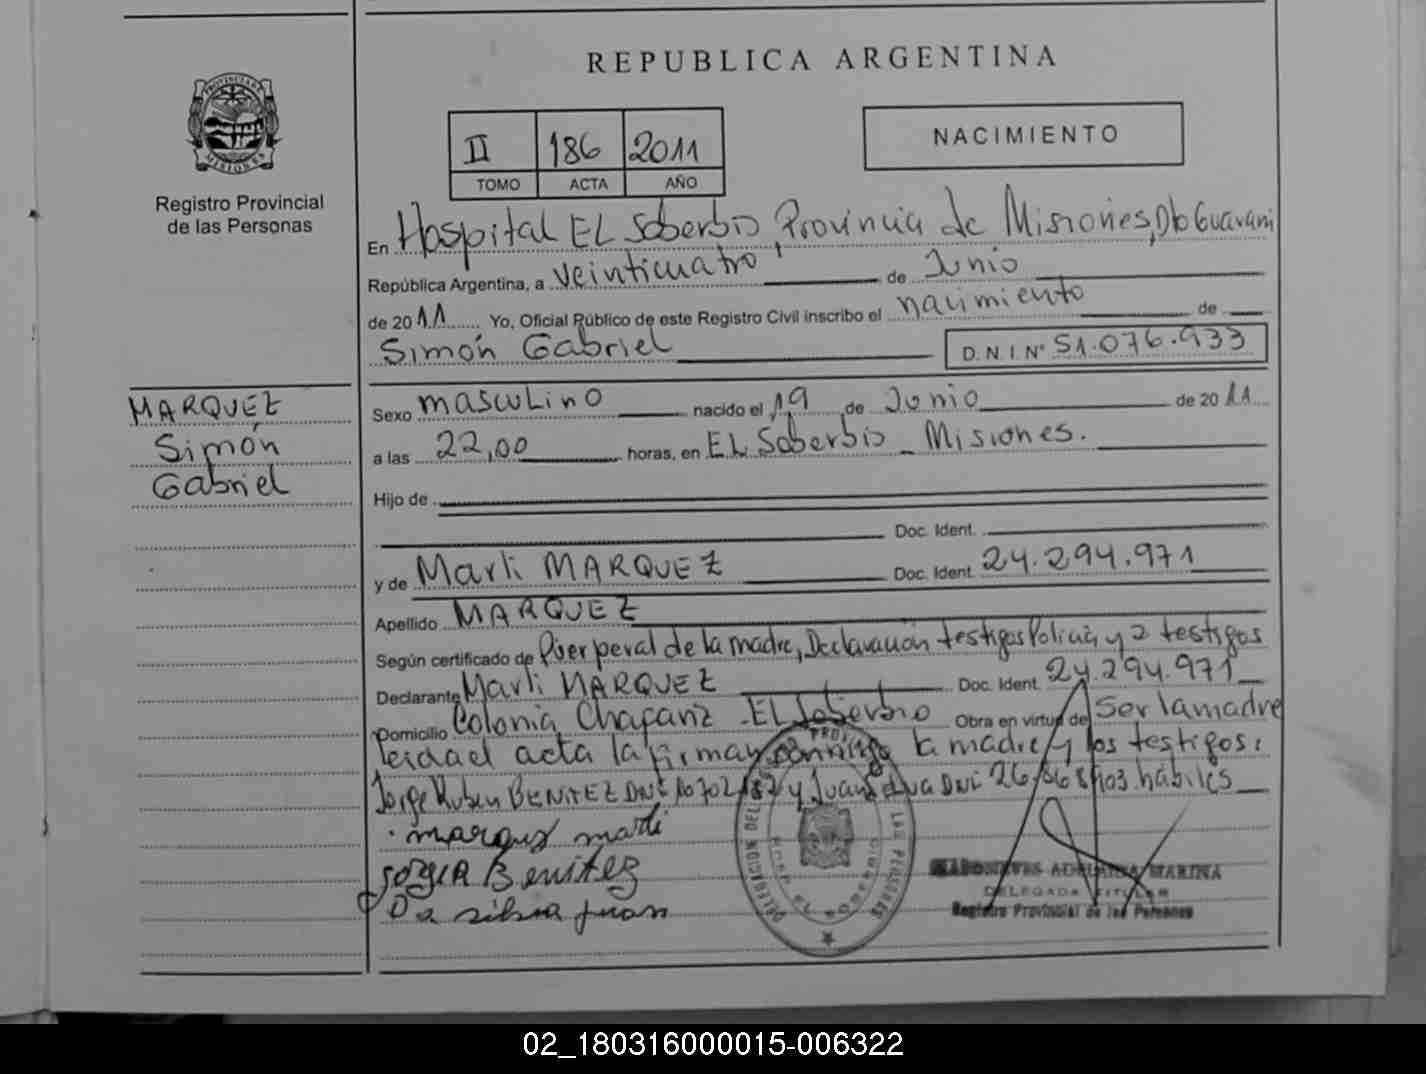 REPUBLICA ARGENTINA
PROVINCIA DE
MISIONES
Registro Provincial
de las Personas
II 186 2011
TOMO ACTA AÑO
NACIMIENTO
En Hospital EL Soberbio, Provincia de Misiones, Dto Guarani
República Argentina, a veinticuatro de Junio
de 2011 Yo, Oficial Público de este Registro Civil inscribo el nacimiento de
Simón Gabriel D.N.I. Nº 51.076.933
MARQUEZ
Simón
Gabriel
Sexo masculino nacido el 19 de Junio de 2011
a las 22,00 horas, en EL Soberbio _ Misiones.
Hijo de
Doc. Ident.
y de Marli MARQUEZ Doc. Ident. 24.294.971
Apellido MARQUEZ
Según certificado de Puerperal de la madre, Declaración testigos Policia y 2 testigos
Declarante Marli MARQUEZ Doc. Ident. 24.294.971
Domicilio Colonia EL Soberbio Obra en virtud de Ser la madre
Leida el acta la firman conmigo la madre y los testigos:
Jorge Ruben BENITEZ DNI y Juan DNI habiles
marquez marli
Jorge R Benitez
Da silva juan
DELEGACION DEL REGISTRO PROVINCIAL DE LAS PERSONAS
HOSP. EL SOBERBIO
MARINA
DELEGADA TITULAR
Registro Provincial de las Personas
02_180316000015-006322